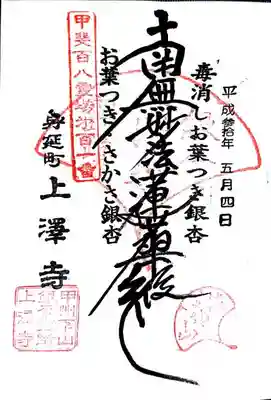 平成参拾年 五月四日
毒消しお葉つき銀杏
南無妙法蓮華経
お葉つきさかさ銀杏
甲斐百八霊場第百一番
身延町 上澤寺
甲州下山
上澤寺